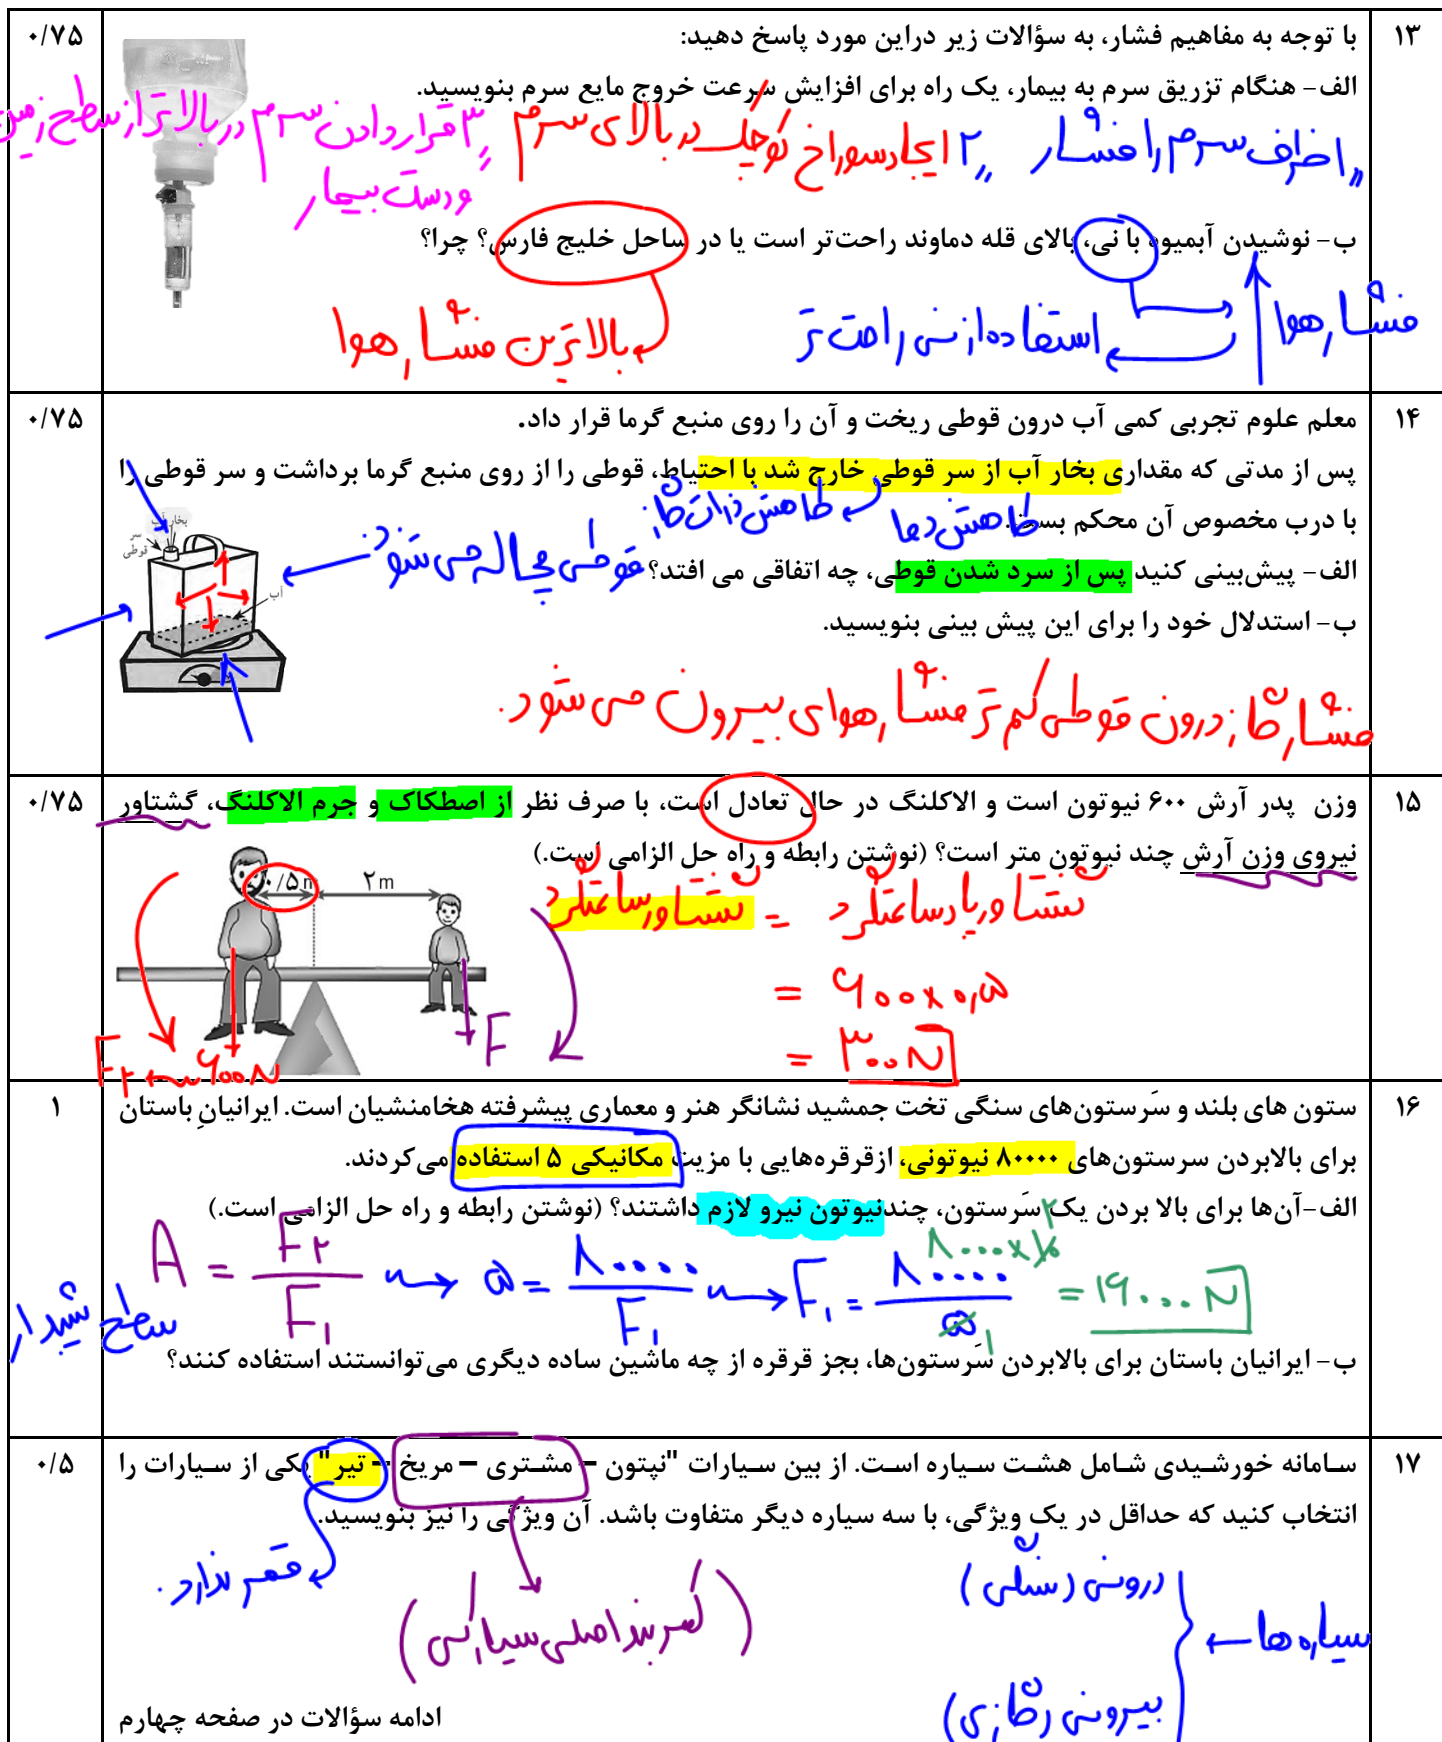 ۱۳
با توجه به مفاهیم فشار، به سؤالات زیر دراین مورد پاسخ دهید:
۰/۷۵
الف- هنگام تزریق سرم به بیمار، یک راه برای افزایش سرعت خروج مایع سرم بنویسید.
اطراف سرم را فشار ۲ ایجاد سوراخ کوچک در بالای سرم ۳ قرار دادن سرم در بالاتر از سطح زمین
و دست بیمار
ب- نوشیدن آبمیوه با نی، بالای قله دماوند راحت‌تر است یا در ساحل خلیج فارس؟ چرا؟
فشار هوا استفاده از نی راحت تر
بالاترین فشار هوا
۱۴
معلم علوم تجربی کمی آب درون قوطی ریخت و آن را روی منبع گرما قرار داد.
۰/۷۵
پس از مدتی که مقداری بخار آب از سر قوطی خارج شد با احتیاط، قوطی را از روی منبع گرما برداشت و سر قوطی را
با درب مخصوص آن محکم بست.
کاهش دما کاهش ذرات گاز
الف- پیش‌بینی کنید پس از سرد شدن قوطی، چه اتفاقی می افتد؟
قوطی مچاله می شود.
ب- استدلال خود را برای این پیش بینی بنویسید.
بخار آب
سر قوطی
آب
فشار گاز درون قوطی کم تر فشار هوای بیرون می شود.
۱۵
وزن پدر آرش ۶۰۰ نیوتون است و الاکلنگ در حال تعادل است، با صرف نظر از اصطکاک و جرم الاکلنگ، گشتاور
۰/۷۵
نیروی وزن آرش چند نیوتون متر است؟ (نوشتن رابطه و راه حل الزامی است.)
۰/۵m ۲m
گشتاور پادساعتگرد = گشتاور ساعتگرد
= ۶۰۰ × ۰٫۵
= ۳۰۰ N
F
F۲ ← ۶۰۰ N
۱۶
ستون های بلند و سَرستون‌های سنگی تخت جمشید نشانگر هنر و معماری پیشرفته هخامنشیان است. ایرانیانِ باستان
۱
برای بالابردن سرستون‌های ۸۰۰۰۰ نیوتونی، ازقرقره‌هایی با مزیت مکانیکی ۵ استفاده می‌کردند.
الف-آن‌ها برای بالا بردن یک سَرستون، چندنیوتون نیرو لازم داشتند؟ (نوشتن رابطه و راه حل الزامی است.)
A = F۲/F۱ → ۵ = ۸۰۰۰۰/F۱ → F۱ = ۸۰۰۰۰/۵ = ۱۶۰۰۰ N
ب- ایرانیان باستان برای بالابردن سَرستون‌ها، بجز قرقره از چه ماشین ساده دیگری می‌توانستند استفاده کنند؟
سطح شیبدار
۱۷
سامانه خورشیدی شامل هشت سیاره است. از بین سیارات "نپتون – مشتری – مریخ – تیر" یکی از سیارات را
۰/۵
انتخاب کنید که حداقل در یک ویژگی، با سه سیاره دیگر متفاوت باشد. آن ویژگی را نیز بنویسید.
قمر ندارد.
(کمربند اصلی سیارکی)
سیاره ها ←
درونی (سنگی)
بیرونی (گازی)
ادامه سؤالات در صفحه چهارم